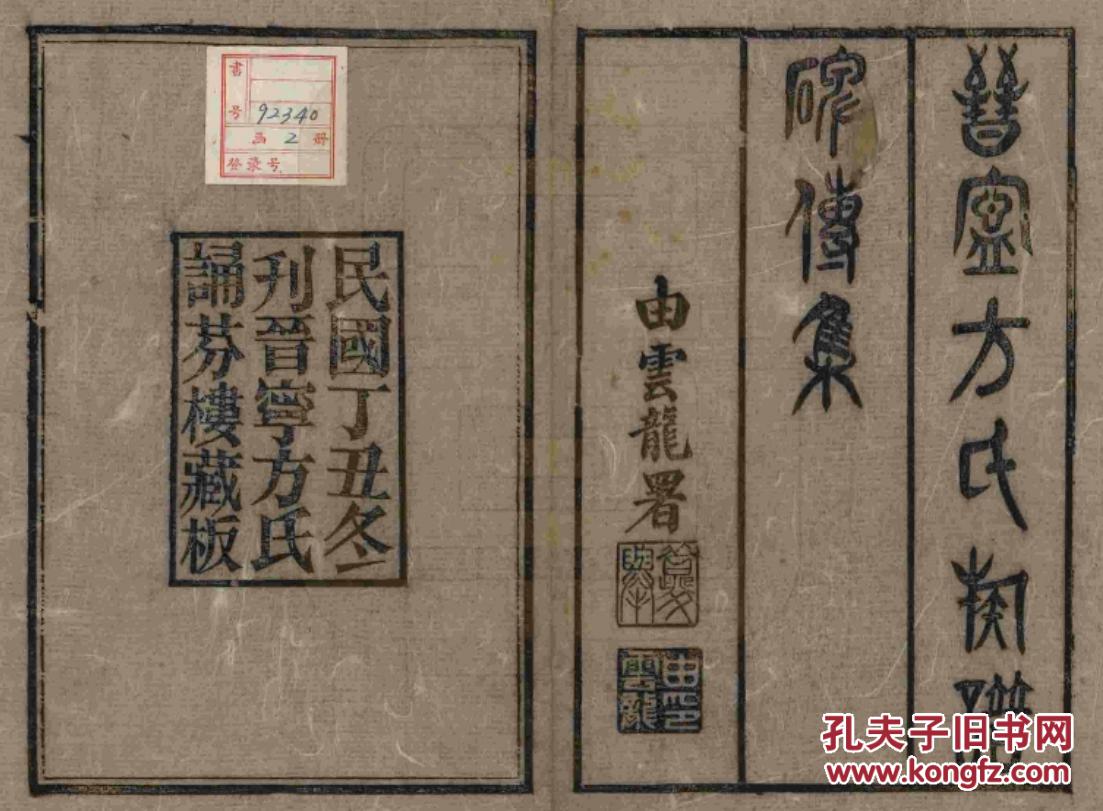 晉寧方氏
碑傳集
由雲龍署
由印
雲龍
民國丁丑冬
刊晉寧方氏
誦芬樓藏板
書号 92340
函 2 册
登录号
孔夫子旧书网
www.kongfz.com